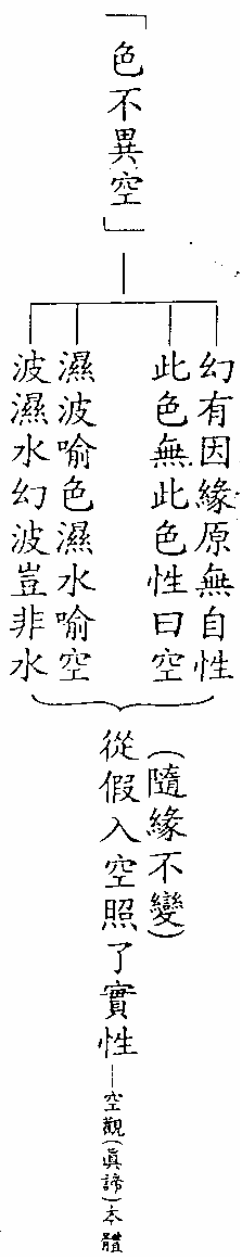 「色不異空」
幻有因緣原無自性
此色無此色性曰空
濕波喻色濕水喻空
波濕水幻波豈非水
(隨緣不變)
從假入空照了實性—空觀(眞諦)本體